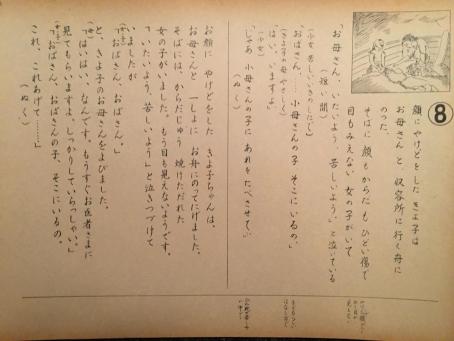 ⑧
顔にやけどをした きよ子は
お母さんと 収容所に行く舟に
のった。
そばに 顔も からだも ひどい傷で
目もみえない 女の子がいて
「お母さん、いたいよう、苦しいよう」と泣いている
(短い間)
(少女 苦しい
「おばさん……小母さんの子 そこにいるの」
(きよ子の母やさしく)
「はい、いますよ」
(少女)
「じゃあ 小母さんの子に あれをたべさせて」
(ぬく)
お顔に やけどをした きよ子ちゃんは、
お母さんと 一しょに お舟にのってにげました。
そばには、からだじゅう 焼けただれた
女の子がいました。もう目も見えないようです。
「いたいよう、苦しいよう」と泣きつづけて
いましたが
「おばさん、おばさん。」
と、きよ子のお母さんをよびました。
「はいはい、なんです。もうすぐお医者さまに
見てもらいますよ、しっかりしていらっしゃい。」
「おばさん、おばさんの子、そこにいるの。
これ、これあげて……」
(ぬく)